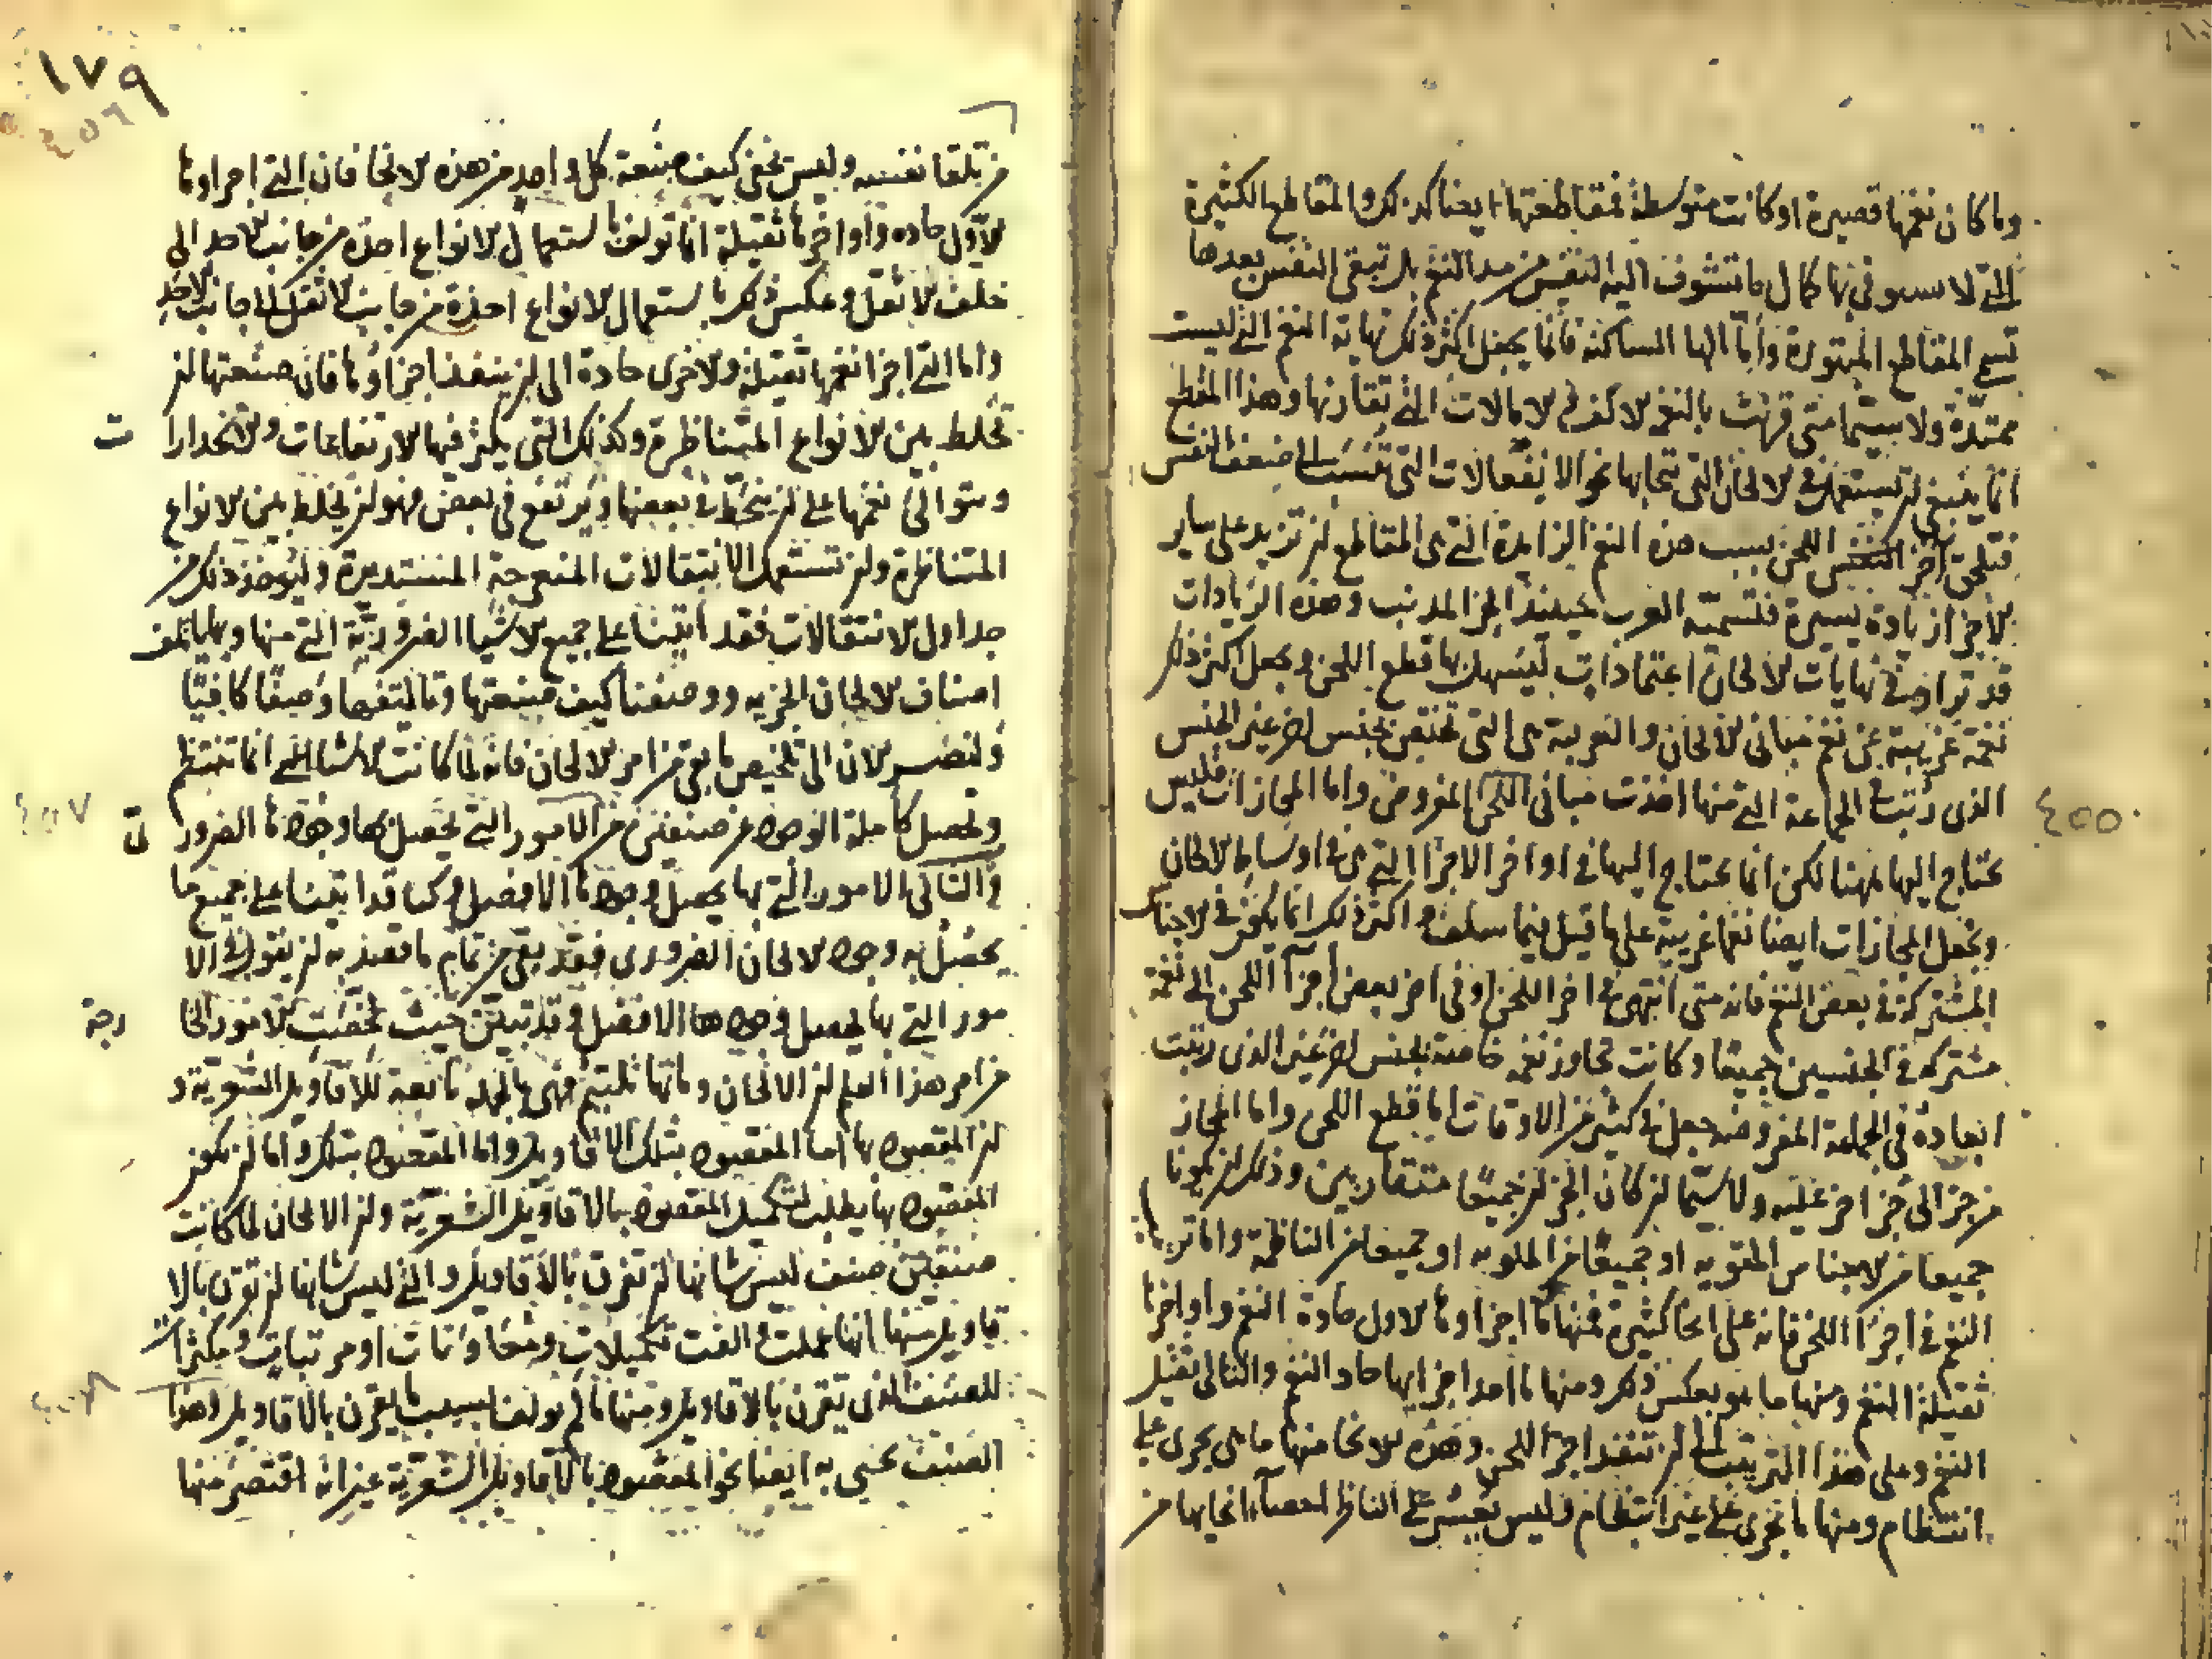 وما كان نغمها قصيرة او كانت متوسطة فمقاطعتها ايضا كذلك والمقاطع الكثيرة
التي لا يستوفى بها كمال ما تتشوف اليه النفس من مد النغم بل تبقى النفس بعدها
تسمى المقاطع المبتورة واما الها الساكنة فانما يجعل اكثر ذلك نهاية النغم التي ليست
ممتدة ولا سيما متى قرنت بالنغم الاخر في الامالات التي تقارنها وهذا المقطع
انما ينبغي ان يستعمل في الالحان التي ينحا بها نحو الانفعالات التي تنسب الى ضعف النفس
فيلحق اخر اللحن بسبب هذه النغم الزايدة التي هي المقاطع ان تزيد على ساير
الاجزا زيادة يسيرة فتسميه العرب حينئذ الجز المذنب وهذه الزيادات
قد تراد في نهايات الالحان اعتمادات ليسهل بها قطع اللحن ويجعل اكثر ذلك
نغمة غريبة عن نغم مباني الالحان والغريبة هي التي تختص بجنس اخر غير الجنس
الذي رتبت الجماعة التي منها اخذت مباني اللحن المفروض واما المجازات فليس
٤٥٥
يحتاج اليها ههنا لكن انما يحتاج اليها في اواخر الاجزا التي هي في اوساط الالحان
وتجعل المجازات ايضا نغما غريبة على ما قيل فيما سلف و اكثر ذلك انما يكون في الاجناس
المشتركة في بعض النغم فانه متى انتهى في اخر اللحن او في اخر بعض اجزآ اللحن الى نغمة
مشتركة في الجنسين جميعا وكانت تجاوز نغمه خاصة بجنس اخر غير الذي رتبت
ابعاده في الجماعة المفروضه جعل في كثير من الاوقات اما قطع اللحن واما المجاز
من جز الى جز اخر عليه ولا سيما ان كان الجز ان جميعا متقاربين وذلك ان يكونا
جميعا من الاجناس المقويه او جميعا من الملونه او جميعا من الناظمة واما ترتيب
النغم في اجزا اللحن فانه على انحا كثيرة فمنها ما اجزاوها الاول حادة النغم واواخرها
ثقيلة النغم ومنها ما هو بعكس ذلك ومنها ما احد اجزايها حاد النغم والتالي ثقيل
النغم وعلى هذا الترتيب الى ان تنفد اجزا اللحن وهذه الانحا منها ما هي يجري على
انتظام ومنها ما يجري على غير انتظام وليس يعسر على الناظر احصآ انحايها من
١٧٩
٤٥٦
من تلقا نفسه وليس يخفى كيف صنعة كل واحد من هذه الانحا فان التي اجزاوها
الاول حاده واواخرها ثقيلة انما تولف باستعمال الانواع اخذة من جانب الاحد الى
خلف الاثقل وعكس ذلك باستعمال الانواع اخذة من جانب الاثقل الى جانب الاحد
واما التي اجزا نغمها ثقيلة والاخرى حادة الى ان ينفد اجزاوها فان صنعتها ان
تخلط بين الانواع المتناظرة وكذلك التي يكثر فيها الارتفاعات والانحدارا ت
وتتوالى نغمها على ان ينحط في بعضها ويرتفع في بعض فهو ان يخلط بين الانواع
المتناظرة وان تستعمل الانتقالات المنعرجة المستديرة وليوخذ ذلك من
جداول الانتقالات فقد اتينا على جميع الاشيا الضرورية التي منها وبها يلتف
اصناف الالحان الجزيه ووصفنا كيف صنعتها وتاليفها وصفا كافيا
ولنصر الان الى تلخيص ما بقي من امر الالحان فانه لما كانت الاشيا التي انما تنتظم
وتحصل كاملة الوجود عن صنفين من الامور التي يحصل بها وجودها الضرور ي
٤٥٧
والثاني الامور التي بها يحصل وجودها الافضل وكنا قد اتينا على جميع ما
يحصل به وجود الالحان الضروري فقد بقي من تمام ما نقصد به ان نقول في الا
مور التي بها يحصل وجودها الافضل وقد تبين حيث لخصت الامور الخا رجة
من امر هذا العلم ان الالحان وما بها تلتيم فهي بالجملة تابعة للاقاويل الشعرية و
ان المقصود بها اما المقصود بتلك الاقاويل واما المقصود بتلك واما ان يكون
المقصود بها يطلب لتكميل المقصود بالاقاويل الشعرية وان الالحان لما كانت
صنفين صنف ليس شانها ان تقرن بالاقاويل والتي ليس شانها ان تقرن بالا
قاويل منها انما عملت والفت تكميلات ومحاوتات او مرتبات ومكثرات
للصنف الذي تقرن بالاقاويل ومنها ما لم يولف لسبب ما يقرن بالاقاويل وهذا
الصنف نحي به ايضا نحو المقصود بالاقاويل الشعرية غير انه اقتصر منها